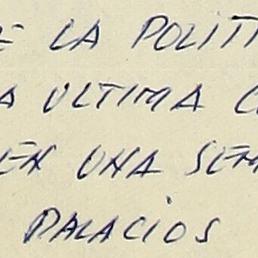 E LA POLITI
A ULTIMA C
EN UNA SEM
PALACIOS